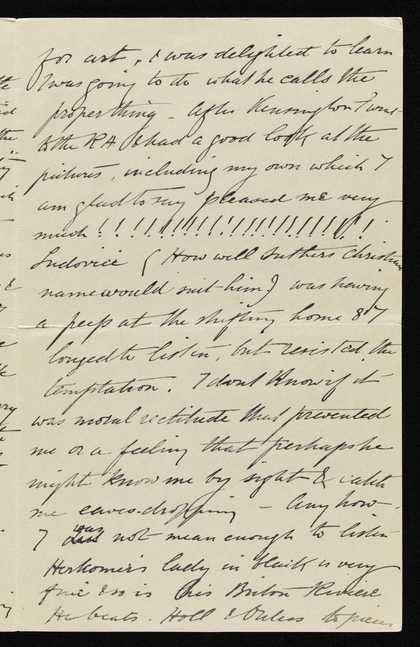 for art, & was delighted to learn
I was going to do what he calls the
proper thing - After Kensington I went
to the RA & had a good look at the
pictures, including my own which I
am glad to say pleased me very
much! !!!!!!!!!!!!!!!!!!!!!
Ludovici (How well Suthers Christian
name would suit him) was having
a peep at the shifting home & I
longed to listen, but resisted the
temptation. I dont know if it
was moral rectitude that prevented
me or a feeling that perhaps he
might know me by sight & catch
me eaves-dropping - Anyhow
I was not mean enough to listen
Herkomer's lady in black is very
fine & so is his Briton Riviere
He beats Holl & Ouless to pieces